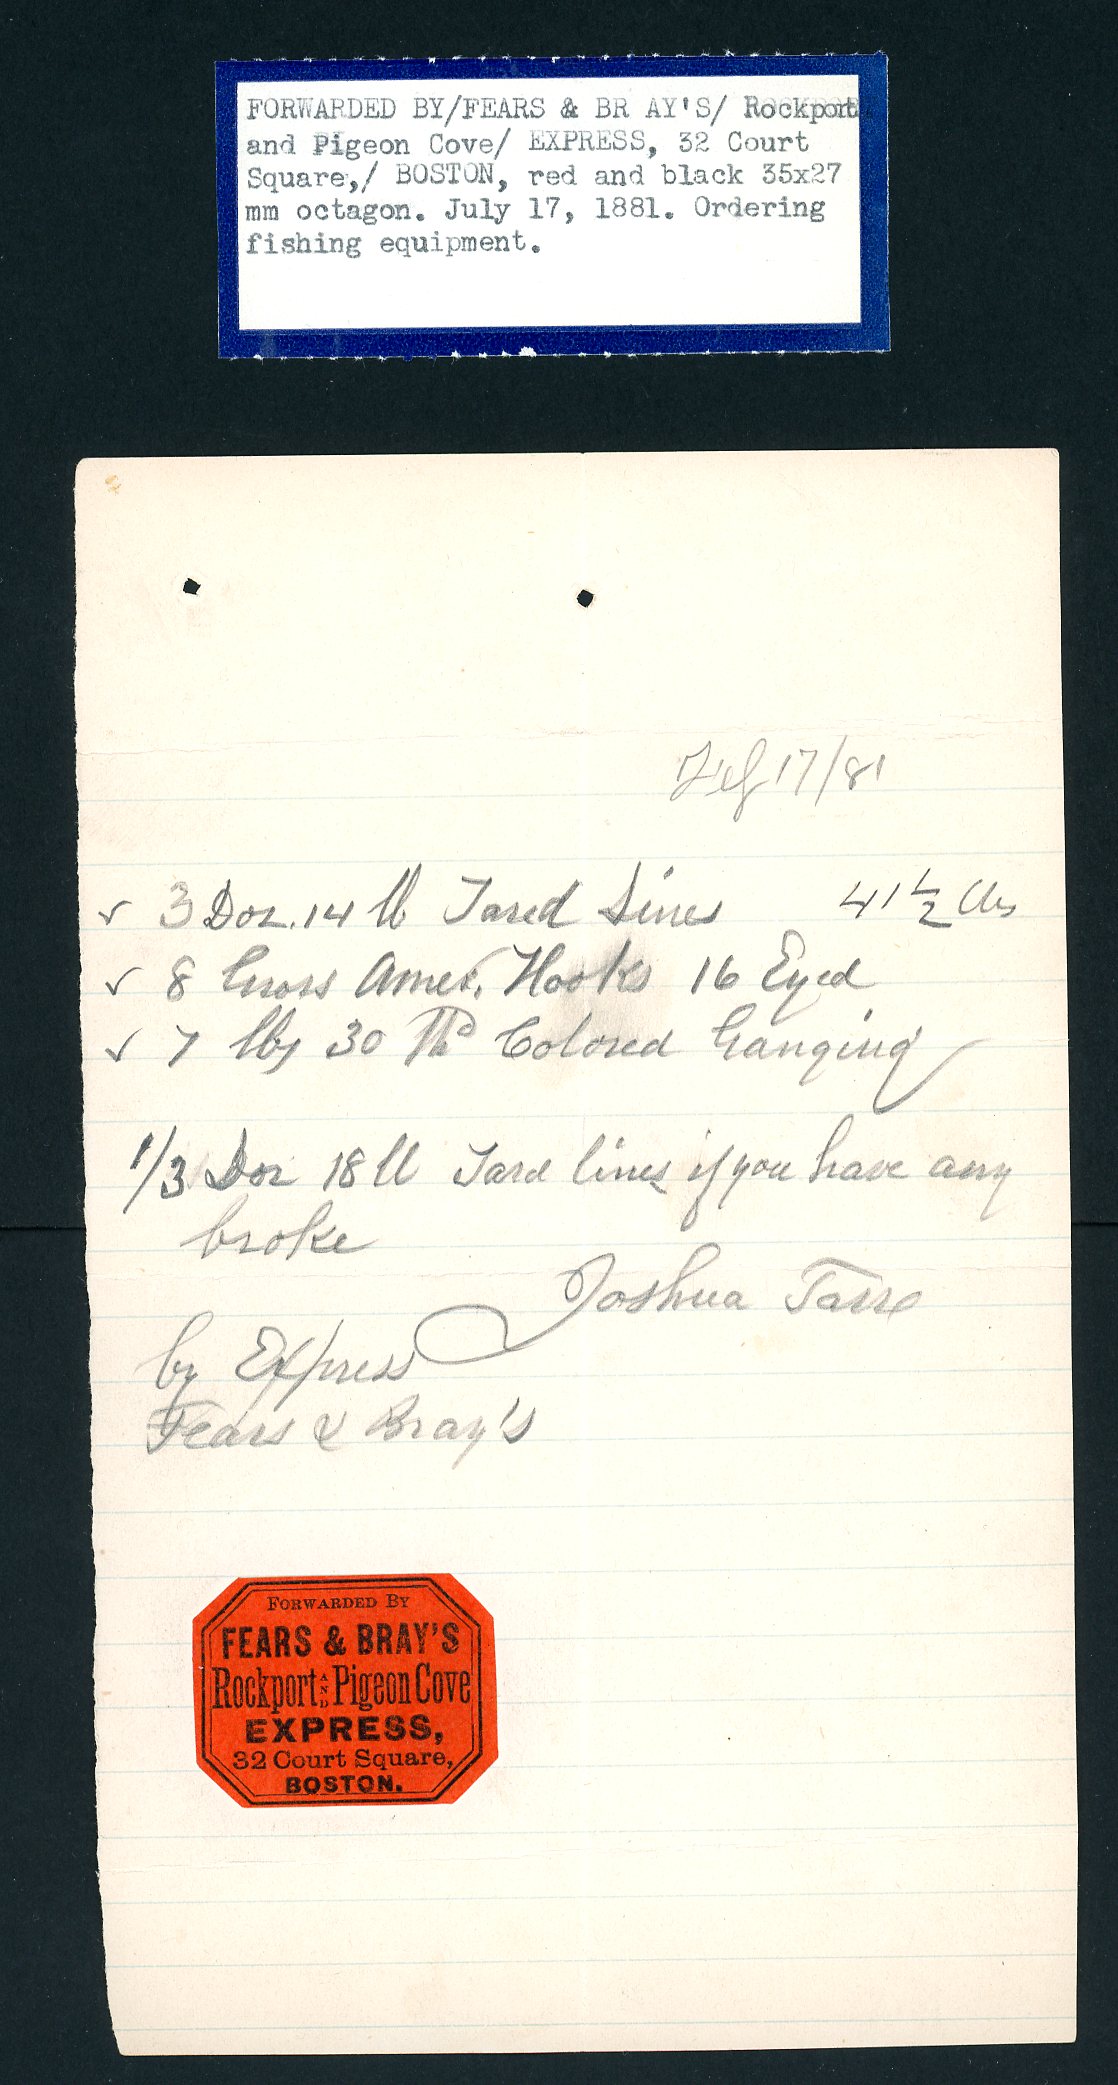 FORWARDED BY/FEARS & BR AY'S/ Rockport
and Pigeon Cove/ EXPRESS, 32 Court
Square,/ BOSTON, red and black 35x27
mm octagon. July 17, 1881. Ordering
fishing equipment.
17/81
3 Doz. 14 lb Tared Lines 41 1/2 lbs
8 Gross Amer. Hooks 16 Eyed
7 lbs 30 Colored Ganging
1/3 Doz 18 lb Tard lines if you have any
broke
Joshua Tarr
by Express
Fears & Bray's
FORWARDED BY
FEARS & BRAY'S
Rockport AND Pigeon Cove
EXPRESS,
32 Court Square,
BOSTON.